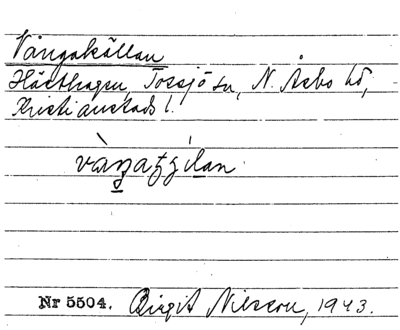 Vångakällan
Hästhagen, Tossjö sn, N. Åsbo hd,
Kristianstads l.
Nr 5504. Birgit Nilsson, 1943.